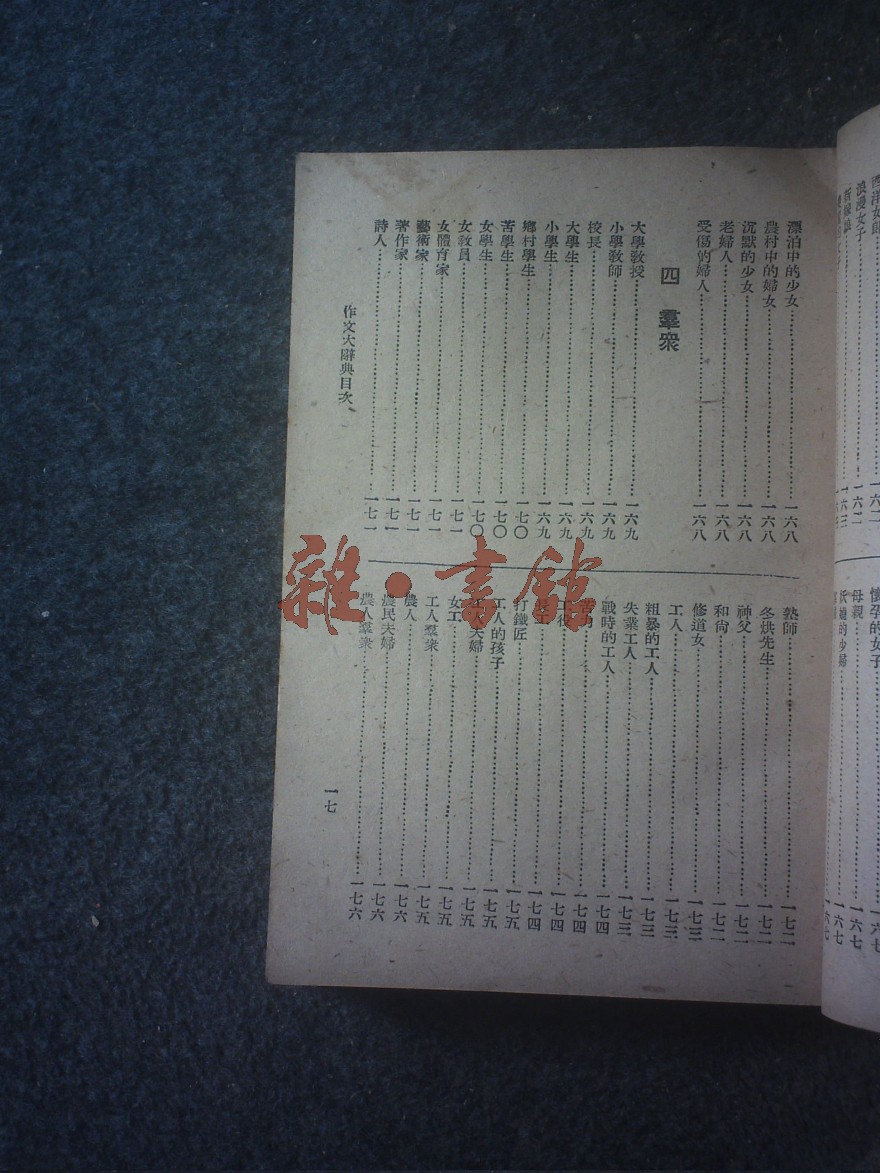 浪漫女子……一六二
懷孕的女子……一六七
母親……一六七
漂泊中的少女……一六八
農村中的婦女……一六八
沉默的少女……一六八
老婦人……一六八
受傷的婦人……一六八
四 羣衆
大學教授……一六九
小學教師……一六九
校長……一六九
大學生……一六九
小學生……一六九
鄉村學生……一七〇
苦學生……一七〇
女學生……一七〇
女教員……一七一
女體育家……一七一
藝術家……一七一
著作家……一七一
詩人……一七一
塾師……一七二
冬烘先生……一七二
神父……一七二
和尚……一七二
修道女……一七三
工人……一七三
粗暴的工人……一七三
失業工人……一七三
戰時的工人……一七四
苦力……一七四
工役……一七四
工……一七四
打鐵匠……一七五
工人的孩子……一七五
工人夫婦……一七五
女工……一七五
工人羣衆……一七五
農人……一七六
農民夫婦……一七六
農人羣衆……一七六
作文大辭典目次
一七
雜·書館